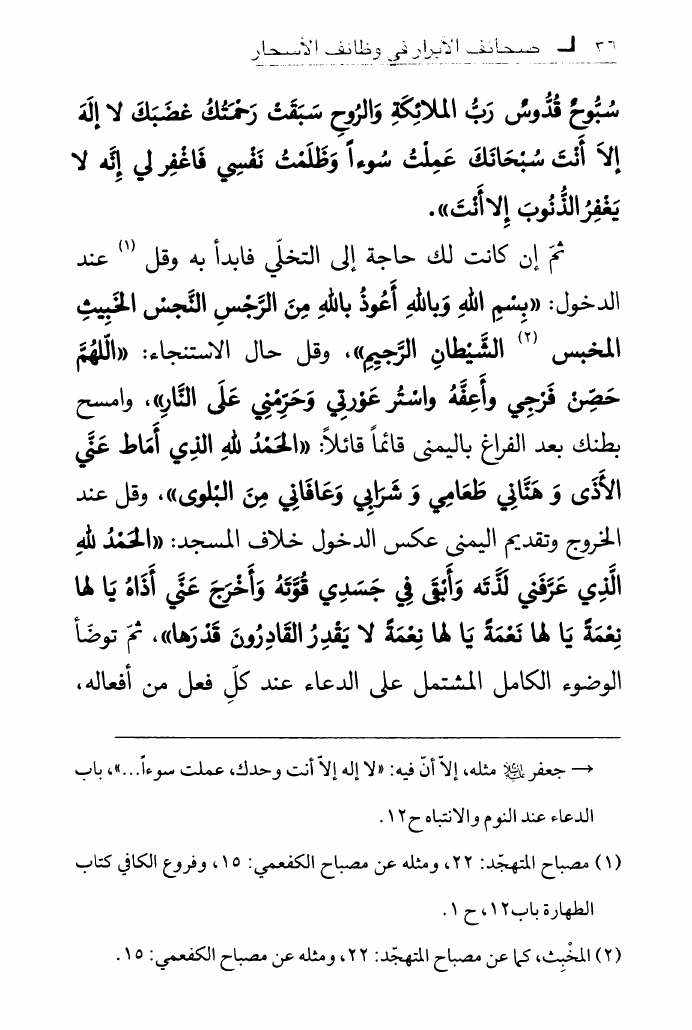 ٣٦ صحائف الأبرار في وظائف الأسحار
سُبُّوحٌ قُدُّوسٌ رَبُّ الملائِكَةِ وَالرُوحِ سَبَقَتْ رَحْمَتُكُ غضَبَكَ لا إلَهَ
إلاَ أَنْتَ سُبْحَانَكَ عَمِلْتُ سُوءاً وَظَلَمْتُ نَفْسِي فَاغْفِر لي إنَّه لا
يَغْفِرُ الذُّنُوبَ إلا أَنْتَ».
ثمّ إن كانت لك حاجة إلى التخلّي فابدأ به وقل (١) عند
الدخول: «بِسْمِ اللهِ وَباللهِ أَعُوذُ باللهِ مِنَ الرَّجْسِ النَّجسْ الخَبِيثِ
المخبس (٢) الشَّيْطانِ الرَّجِيمِ»، وقل حال الاستنجاء: «اللّهُمَّ
حَصِّنْ فَرْجِي وأَعِفَّهُ واسْتُر عَوْرتِي وَحَرِّمْنِي عَلَى النَّارِ»، وامسح
بطنك بعد الفراغ باليمنى قائماً قائلاً: «الحَمْدُ للهِ الذِي أَمَاط عَنَّي
الأَذَى وَ هَنَّاني طَعَامِي وَ شَرَابِي وَعَافَاني مِنَ البْلوى»، وقل عند
الخروج وتقديم اليمنى عكس الدخول خلاف المسجد: «الحَمْدُ للهِ
الَّذِي عَرَّفَني لَذَّتَه وَأَبْقَى فِي جَسَدِي قُوَّتَهُ وَأَخْرَجَ عَنَّي أَذَاهُ يَا لها
نِعْمَةً يَا لها نَعْمَةً يَا لها نِعْمَةً لا يَقْدِرُ القَادِرُونَ قَدْرَها»، ثمّ توضّأ
الوضوء الكامل المشتمل على الدعاء عند كلّ فعل من أفعاله،
→ جعفر مثله، إلاّ أنّ فيه: «لا إله إلاّ أنت وحدك، عملت سوءاً...»، باب
الدعاء عند النوم والانتباه ح١٢.
(١) مصباح المتهجّد: ٢٢، ومثله عن مصباح الكفعمي: ١٥، وفروع الكافي كتاب
الطهارة باب١٢، ح ١.
(٢) المخْبِث، كما عن مصباح المتهجّد: ٢٢، ومثله عن مصباح الكفعمي: ١٥.